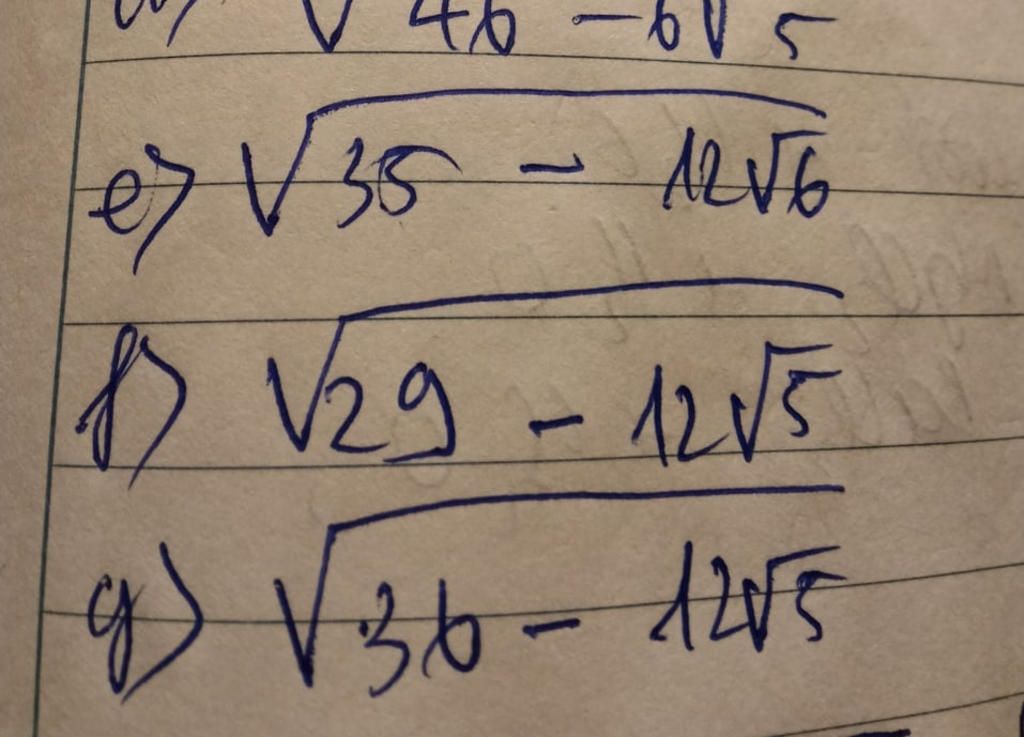 √46 - 6√5
e) √35 - 12√6
f) √29 - 12√5
g) √36 - 12√5